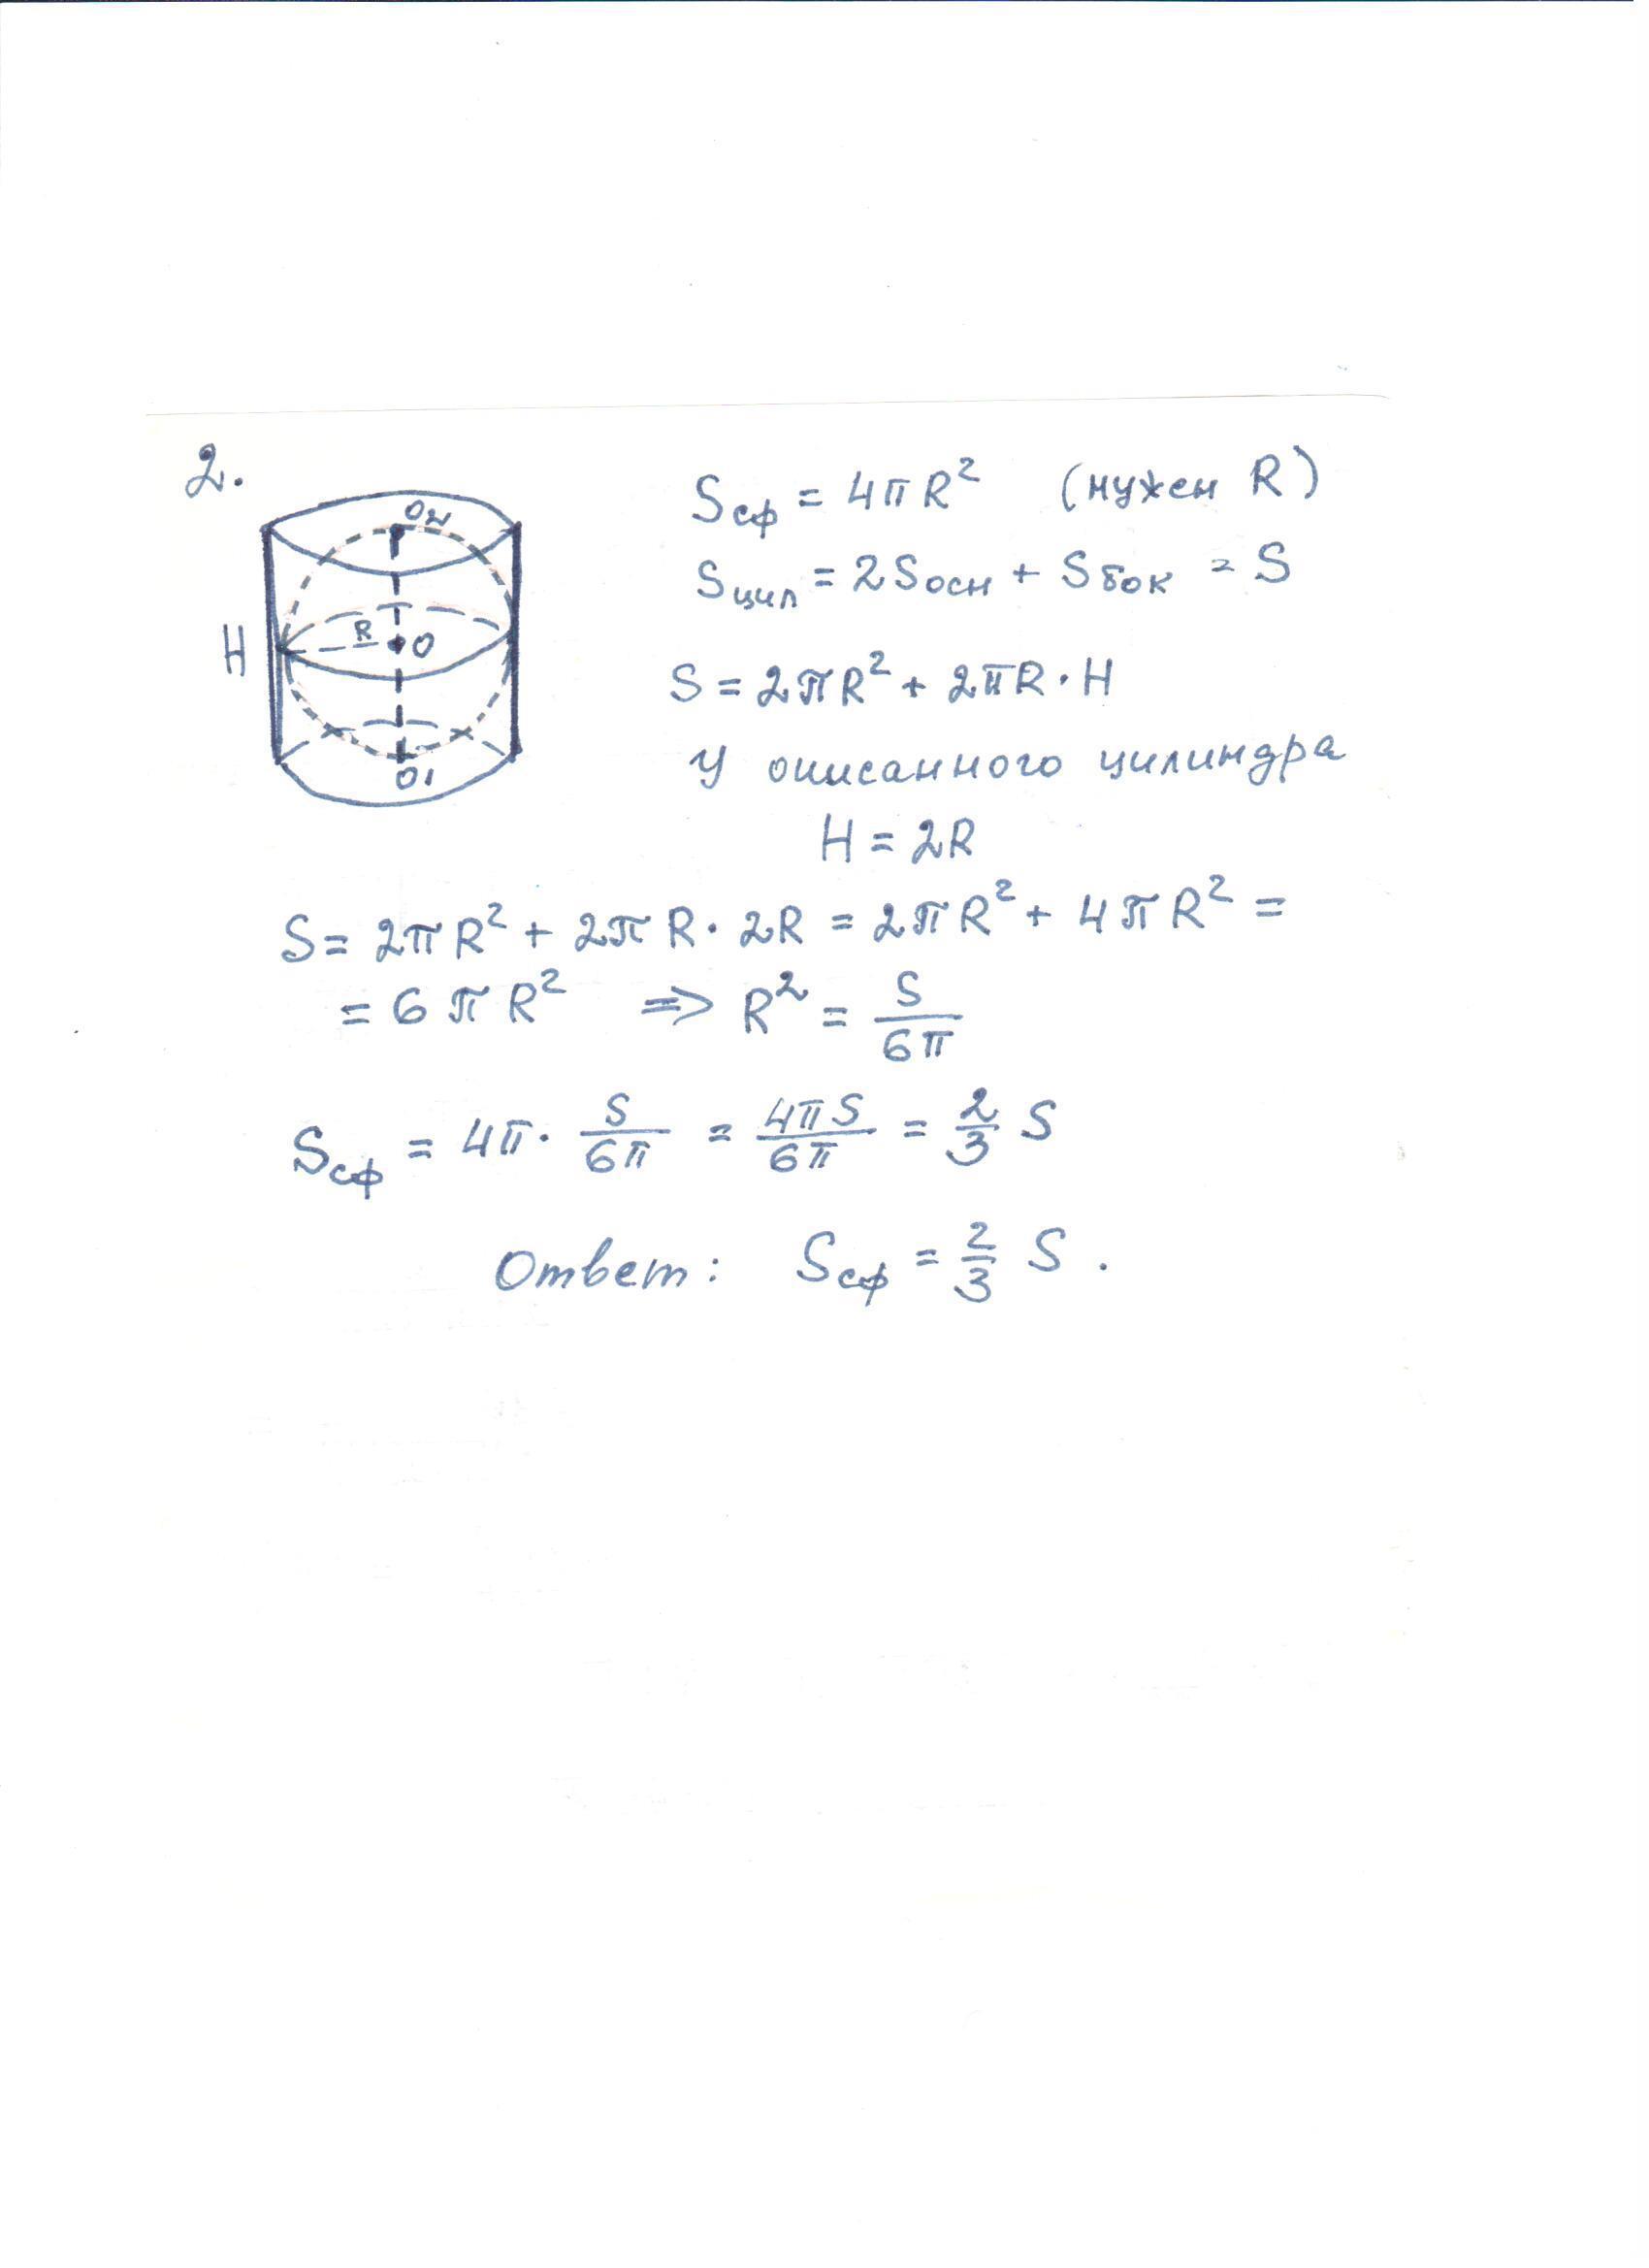 2.
O₂
R
O
H
O₁
Sсф = 4πR² (нужен R)
Sцил = 2Sосн + Sбок = S
S = 2πR² + 2πR·H
У описанного цилиндра
H = 2R
S = 2πR² + 2πR·2R = 2πR² + 4πR² =
= 6πR² => R² = S/6π
Sсф = 4π · S/6π = 4πS/6π = 2/3 S
Ответ: Sсф = 2/3 S.